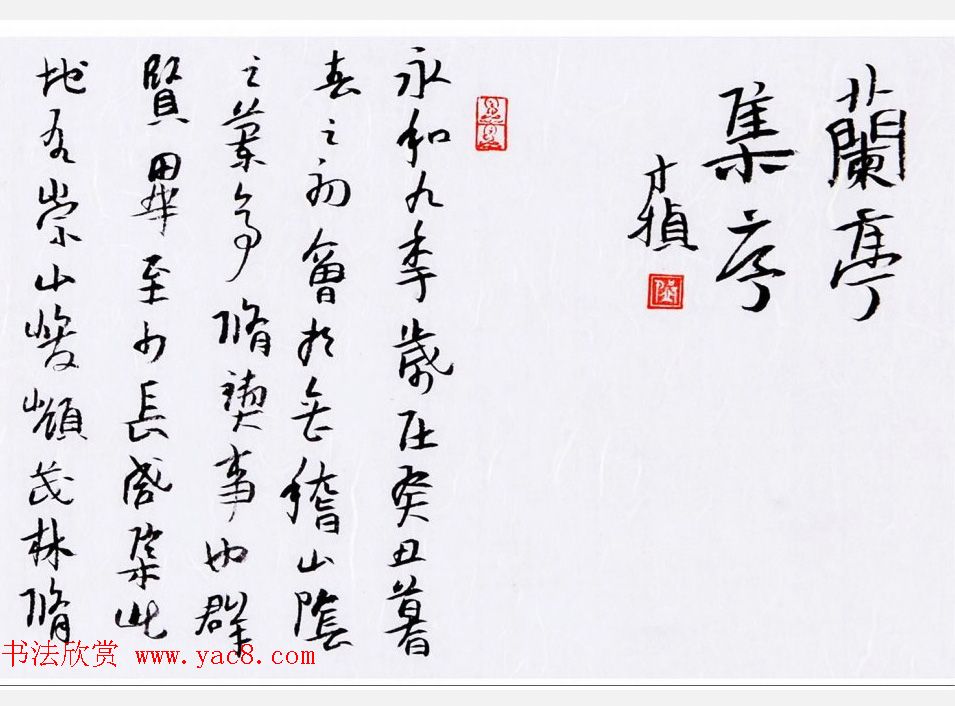 蘭亭
集序
永和九年歲在癸丑暮
春之初會於會稽山陰
之蘭亭脩禊事也群
賢畢至少長咸集此
地有崇山峻嶺茂林脩
书法欣赏 www.yac8.com